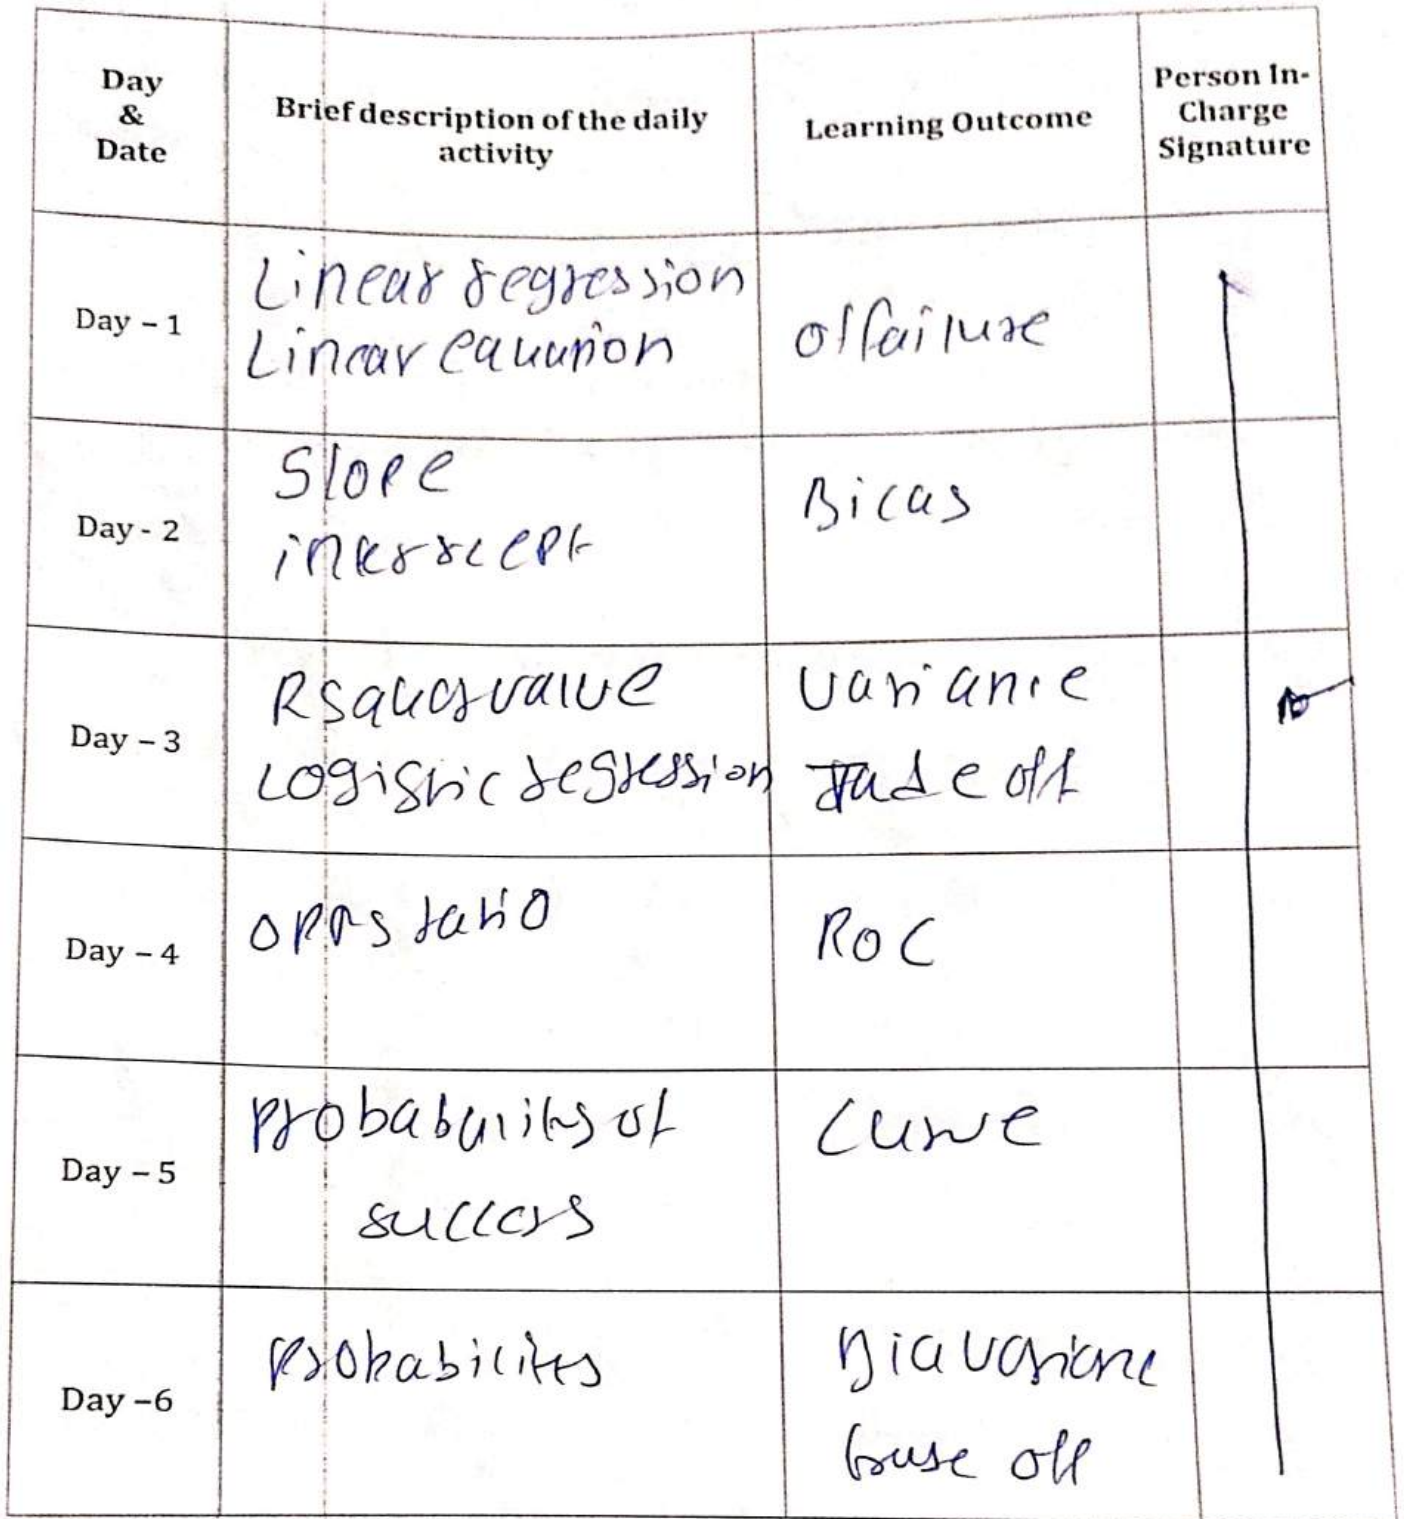 Day & Date
Brief description of the daily activity
Learning Outcome
Person In-Charge Signature
Day – 1
Linear regression
Linear equation
of failure
Day - 2
Slope
interscept
Bicas
Day – 3
Rsquarvalue
Logistic regression
Variance
Trade off
Day – 4
ratio
ROC
Day – 5
of
success
Curve
Day –6
Probabilites
off